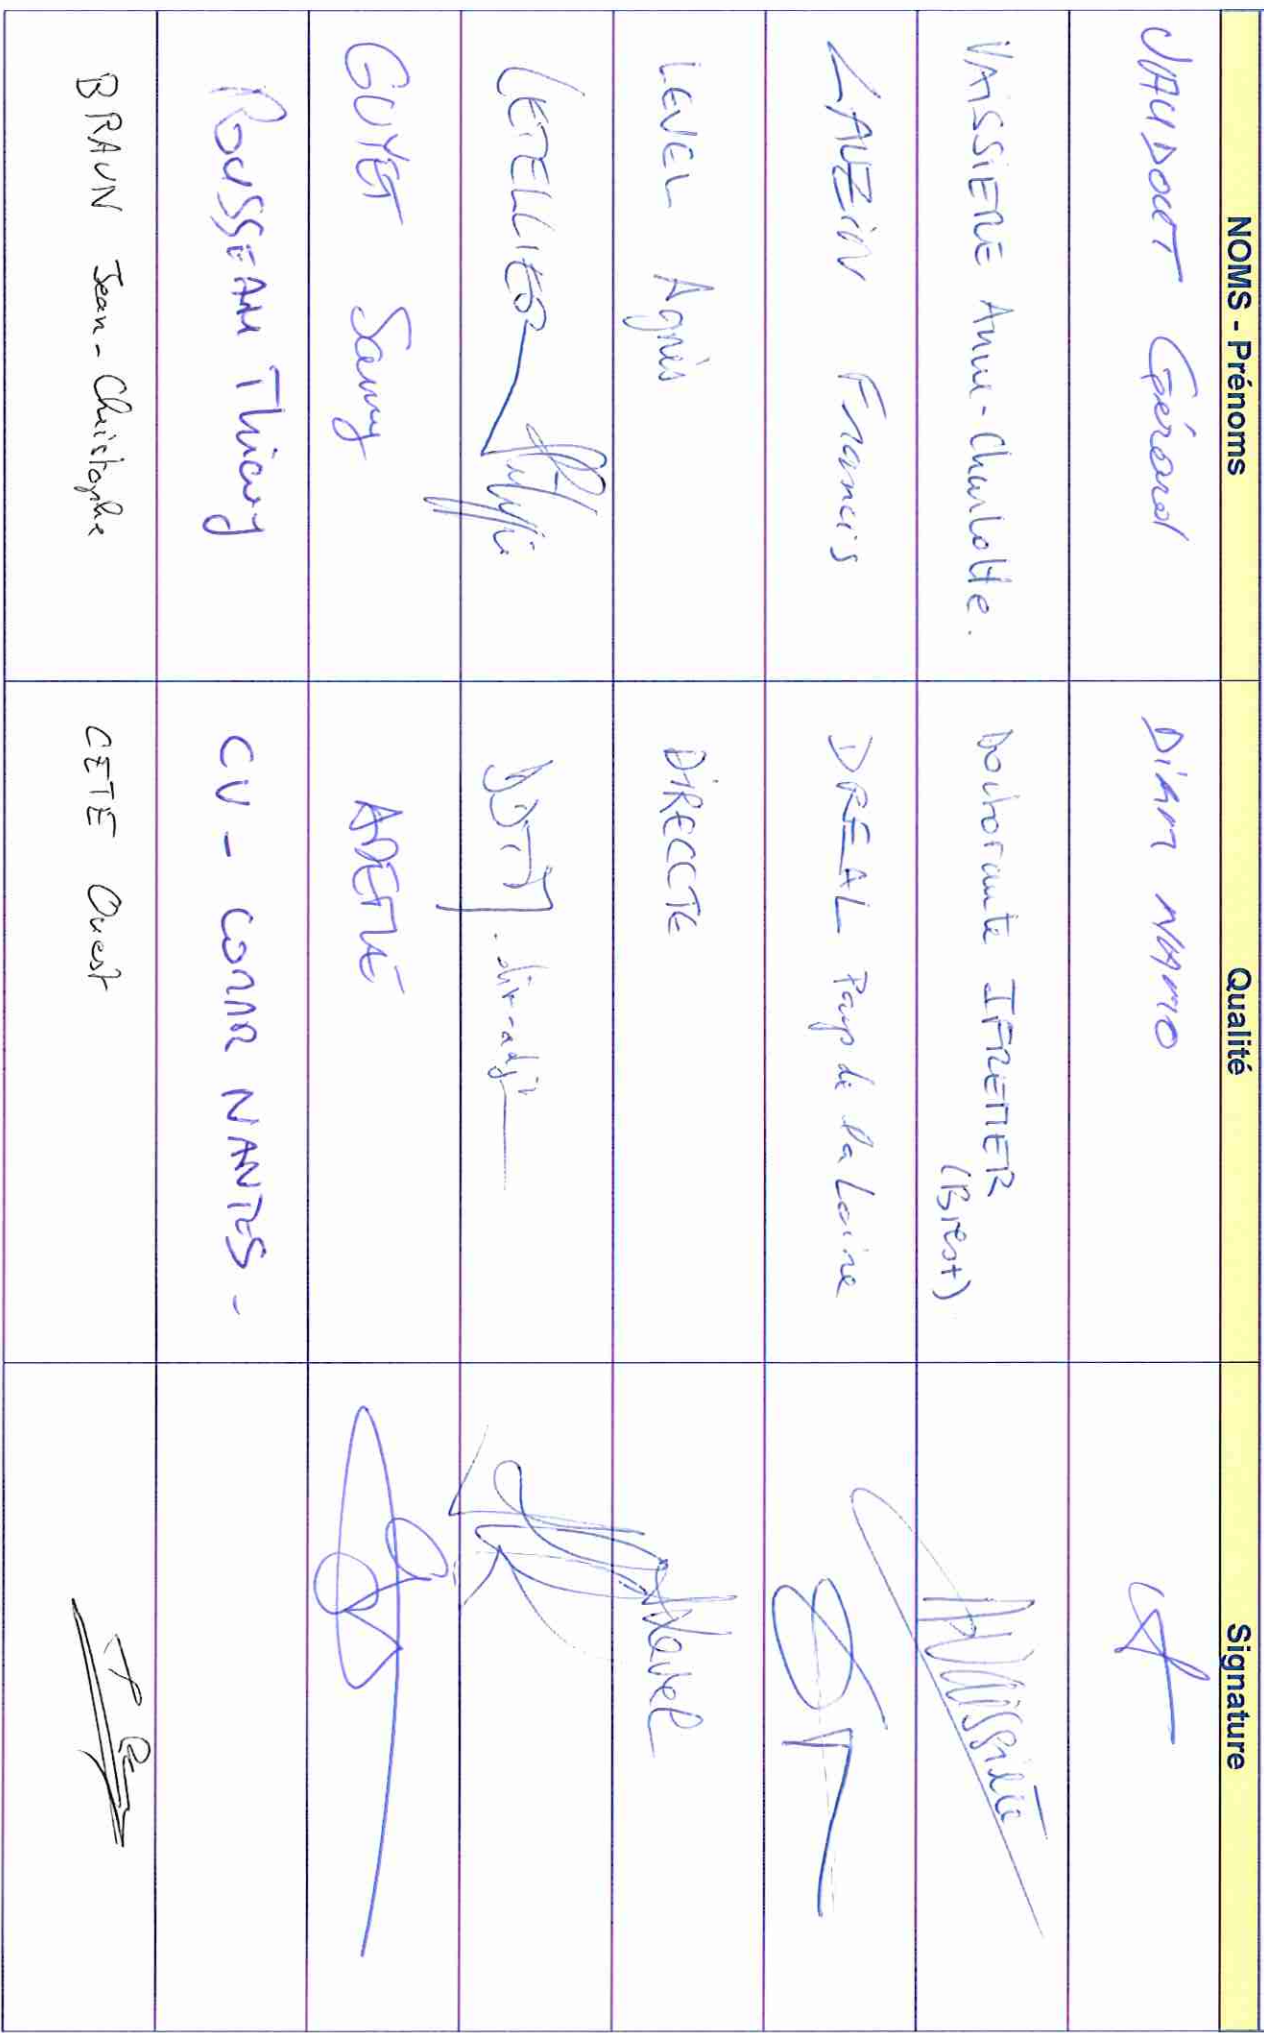 NOMS - Prénoms Qualité Signature
JAUDOUET Gérard DIRM NAMO
VAISSIERE Anne-Charlotte. Doctorante IFREMER
(Brest)
LAUZIN Francis DREAL Pays de la Loire
LEVEL Agnès DIRECCTE Level
LETELLIER DDTM . dir-adjt
GUYET Samy ADEME
ROUSSEAU Thierry CV - COMAR NANTES -
BRAUN Jean-Christophe CETE Ouest